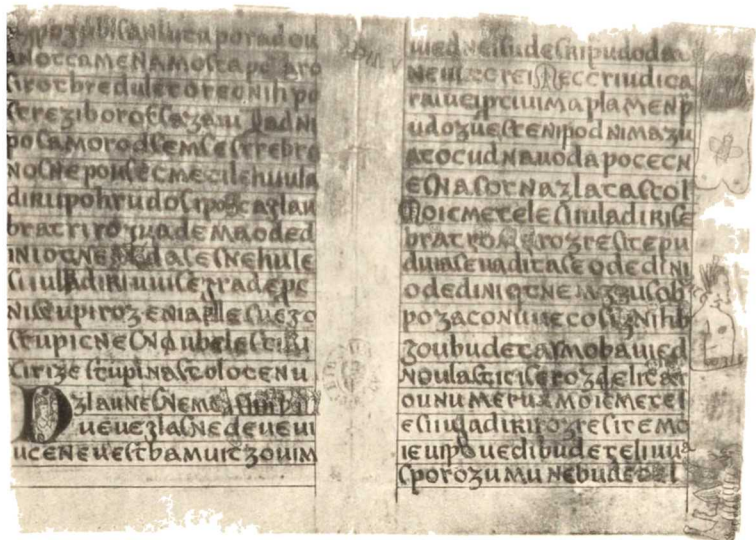 pozubisanlutaporadou
anotcamenamostapo aro
sirotbreduletorecnihpo
streziborotsazaui ladni
posamorodsemsestrebro
nosneponsecmetilehiula
dikiipohrudosipostazlau
bratrirozuademaoded
inıotne dasesnehule
siiuladikiuuisezradepe
nisupirozeniaplesuezo
stupicnesnaubelestuci
cirizestupinastolotenu
Dzlaunesneme
ueuezlasnedeueuı
ucenenestbamuitzouim
uiednejsudeskipudoda
neiutoreimeccriudica
raiueiprtiuimaplamenp
udozuestenipodnimazu
atocudnauodapocecn
esnasotnazlatastol
moicmetelesiiuladikise
bratromarozresitepu
duiaseuaditaseodedini
odediniotnemezusob
pozaconuuecosiznihb
zoubudetaimobauied
noulasticiserozdelitai
ounumerumoicmetel
esiiuladikirozresitemo
ieuipouedibudeteliuu
sporozumunebudetel